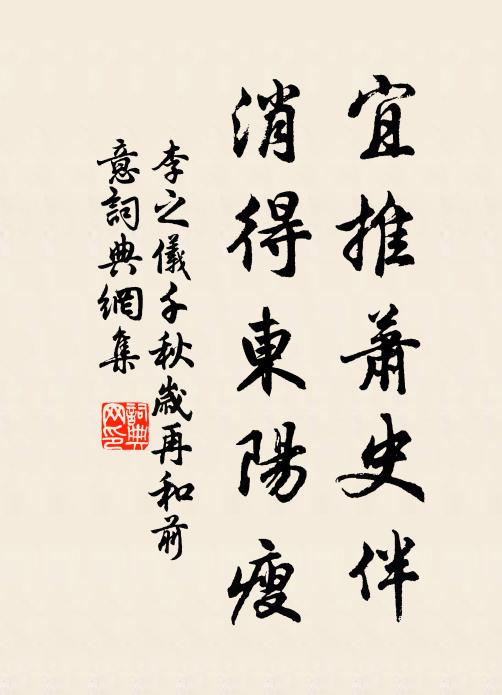 宜推蕭史伴
消得東陽瘦
李之儀千秋歲再和前
意詞典網集
詞典
网印